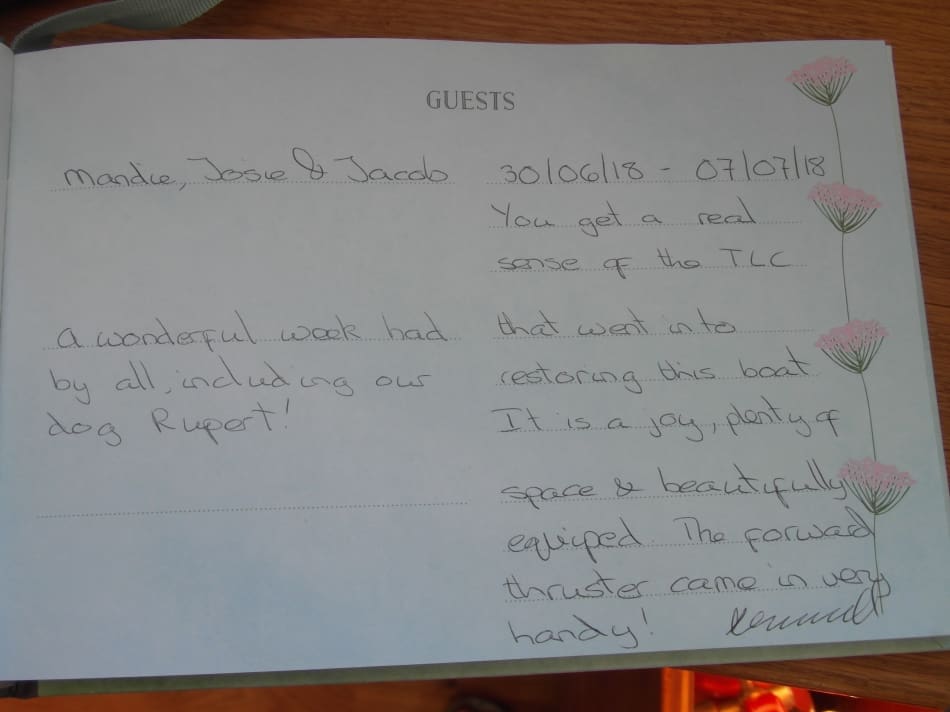 GUESTS
Mandie, Josie & Jacob
A wonderful week had
by all, including our
dog Rupert!
30/06/18 - 07/07/18
You get a real
sense of the TLC
that went into
restoring this boat
It is a joy, plenty of
space & beautifully
equiped. The forwad
thruster came in very
handy!